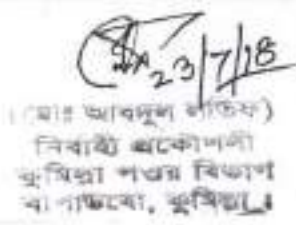 23/7/18
(মোঃ আবদুল লতিফ)
নির্বাহী প্রকৌশলী
কুমিল্লা পওর বিভাগ
বাপাউবো, কুমিল্লা।